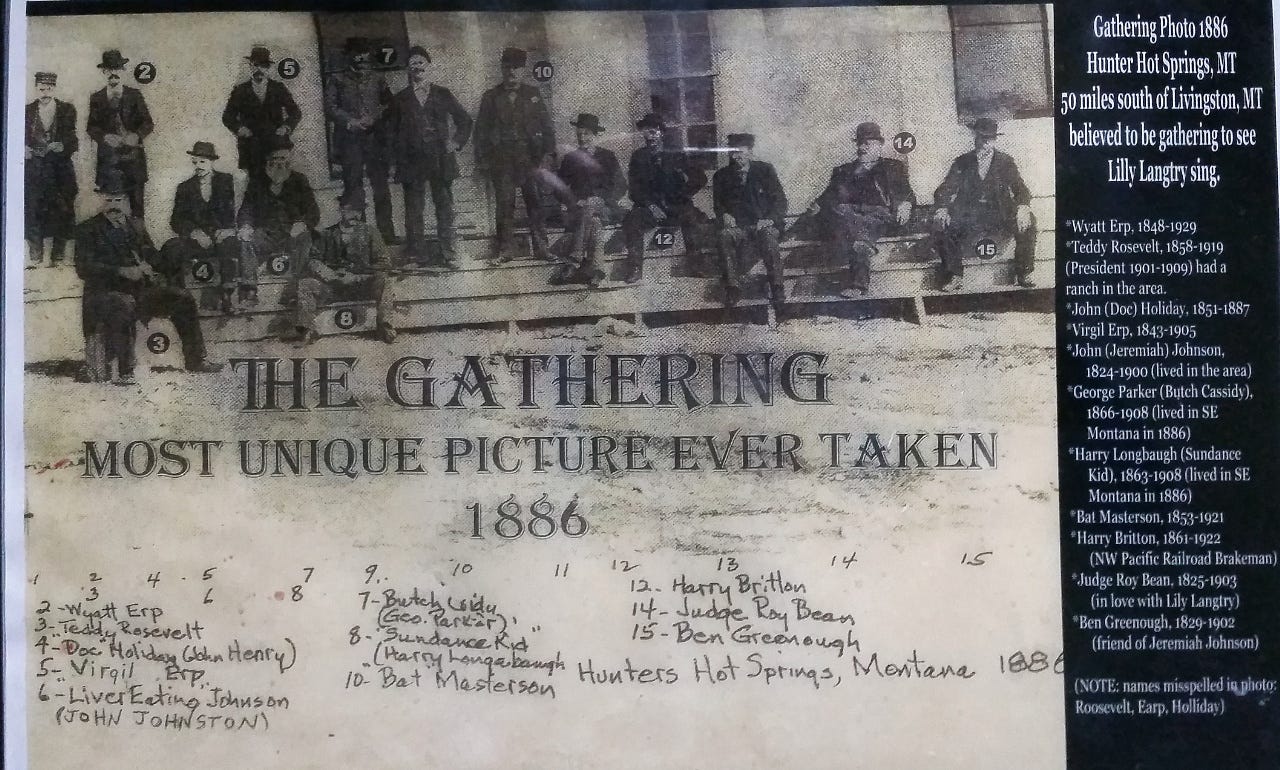 2
5
7
10
14
12
15
4
6
8
3
THE GATHERING
MOST UNIQUE PICTURE EVER TAKEN
1886
1 2 4 5 7 9 10 11 12 13 14 15
3 6 8
2-Wyatt Erp
3-Teddy Rosevelt
4-Doc Holiday (John Henry)
5-Virgil Erp
6-Liver Eating Johnson
(JOHN JOHNSTON)
7-Butch
(Geo. Parker)
8-"Sundance Kid"
(Harry Longabaugh
10-Bat Masterson
12-Harry Britton
14-Judge Roy Bean
15-Ben Greenough
Hunters Hot Springs, Montana 1886
Gathering Photo 1886
Hunter Hot Springs, MT
50 miles south of Livingston, MT
believed to be gathering to see
Lilly Langtry sing.
*Wyatt Erp, 1848-1929
*Teddy Rosevelt, 1858-1919
(President 1901-1909) had a
ranch in the area.
*John (Doc) Holiday, 1851-1887
*Virgil Erp, 1843-1905
*John (Jeremiah) Johnson,
1824-1900 (lived in the area)
*George Parker (Butch Cassidy),
1866-1908 (lived in SE
Montana in 1886)
*Harry Longbaugh (Sundance
Kid), 1863-1908 (lived in SE
Montana in 1886)
*Bat Masterson, 1853-1921
*Harry Britton, 1861-1922
(NW Pacific Railroad Brakeman)
*Judge Roy Bean, 1825-1903
(in love with Lily Langtry)
*Ben Greenough, 1829-1902
(friend of Jeremiah Johnson)
(NOTE: names misspelled in photo:
Roosevelt, Earp, Holliday)